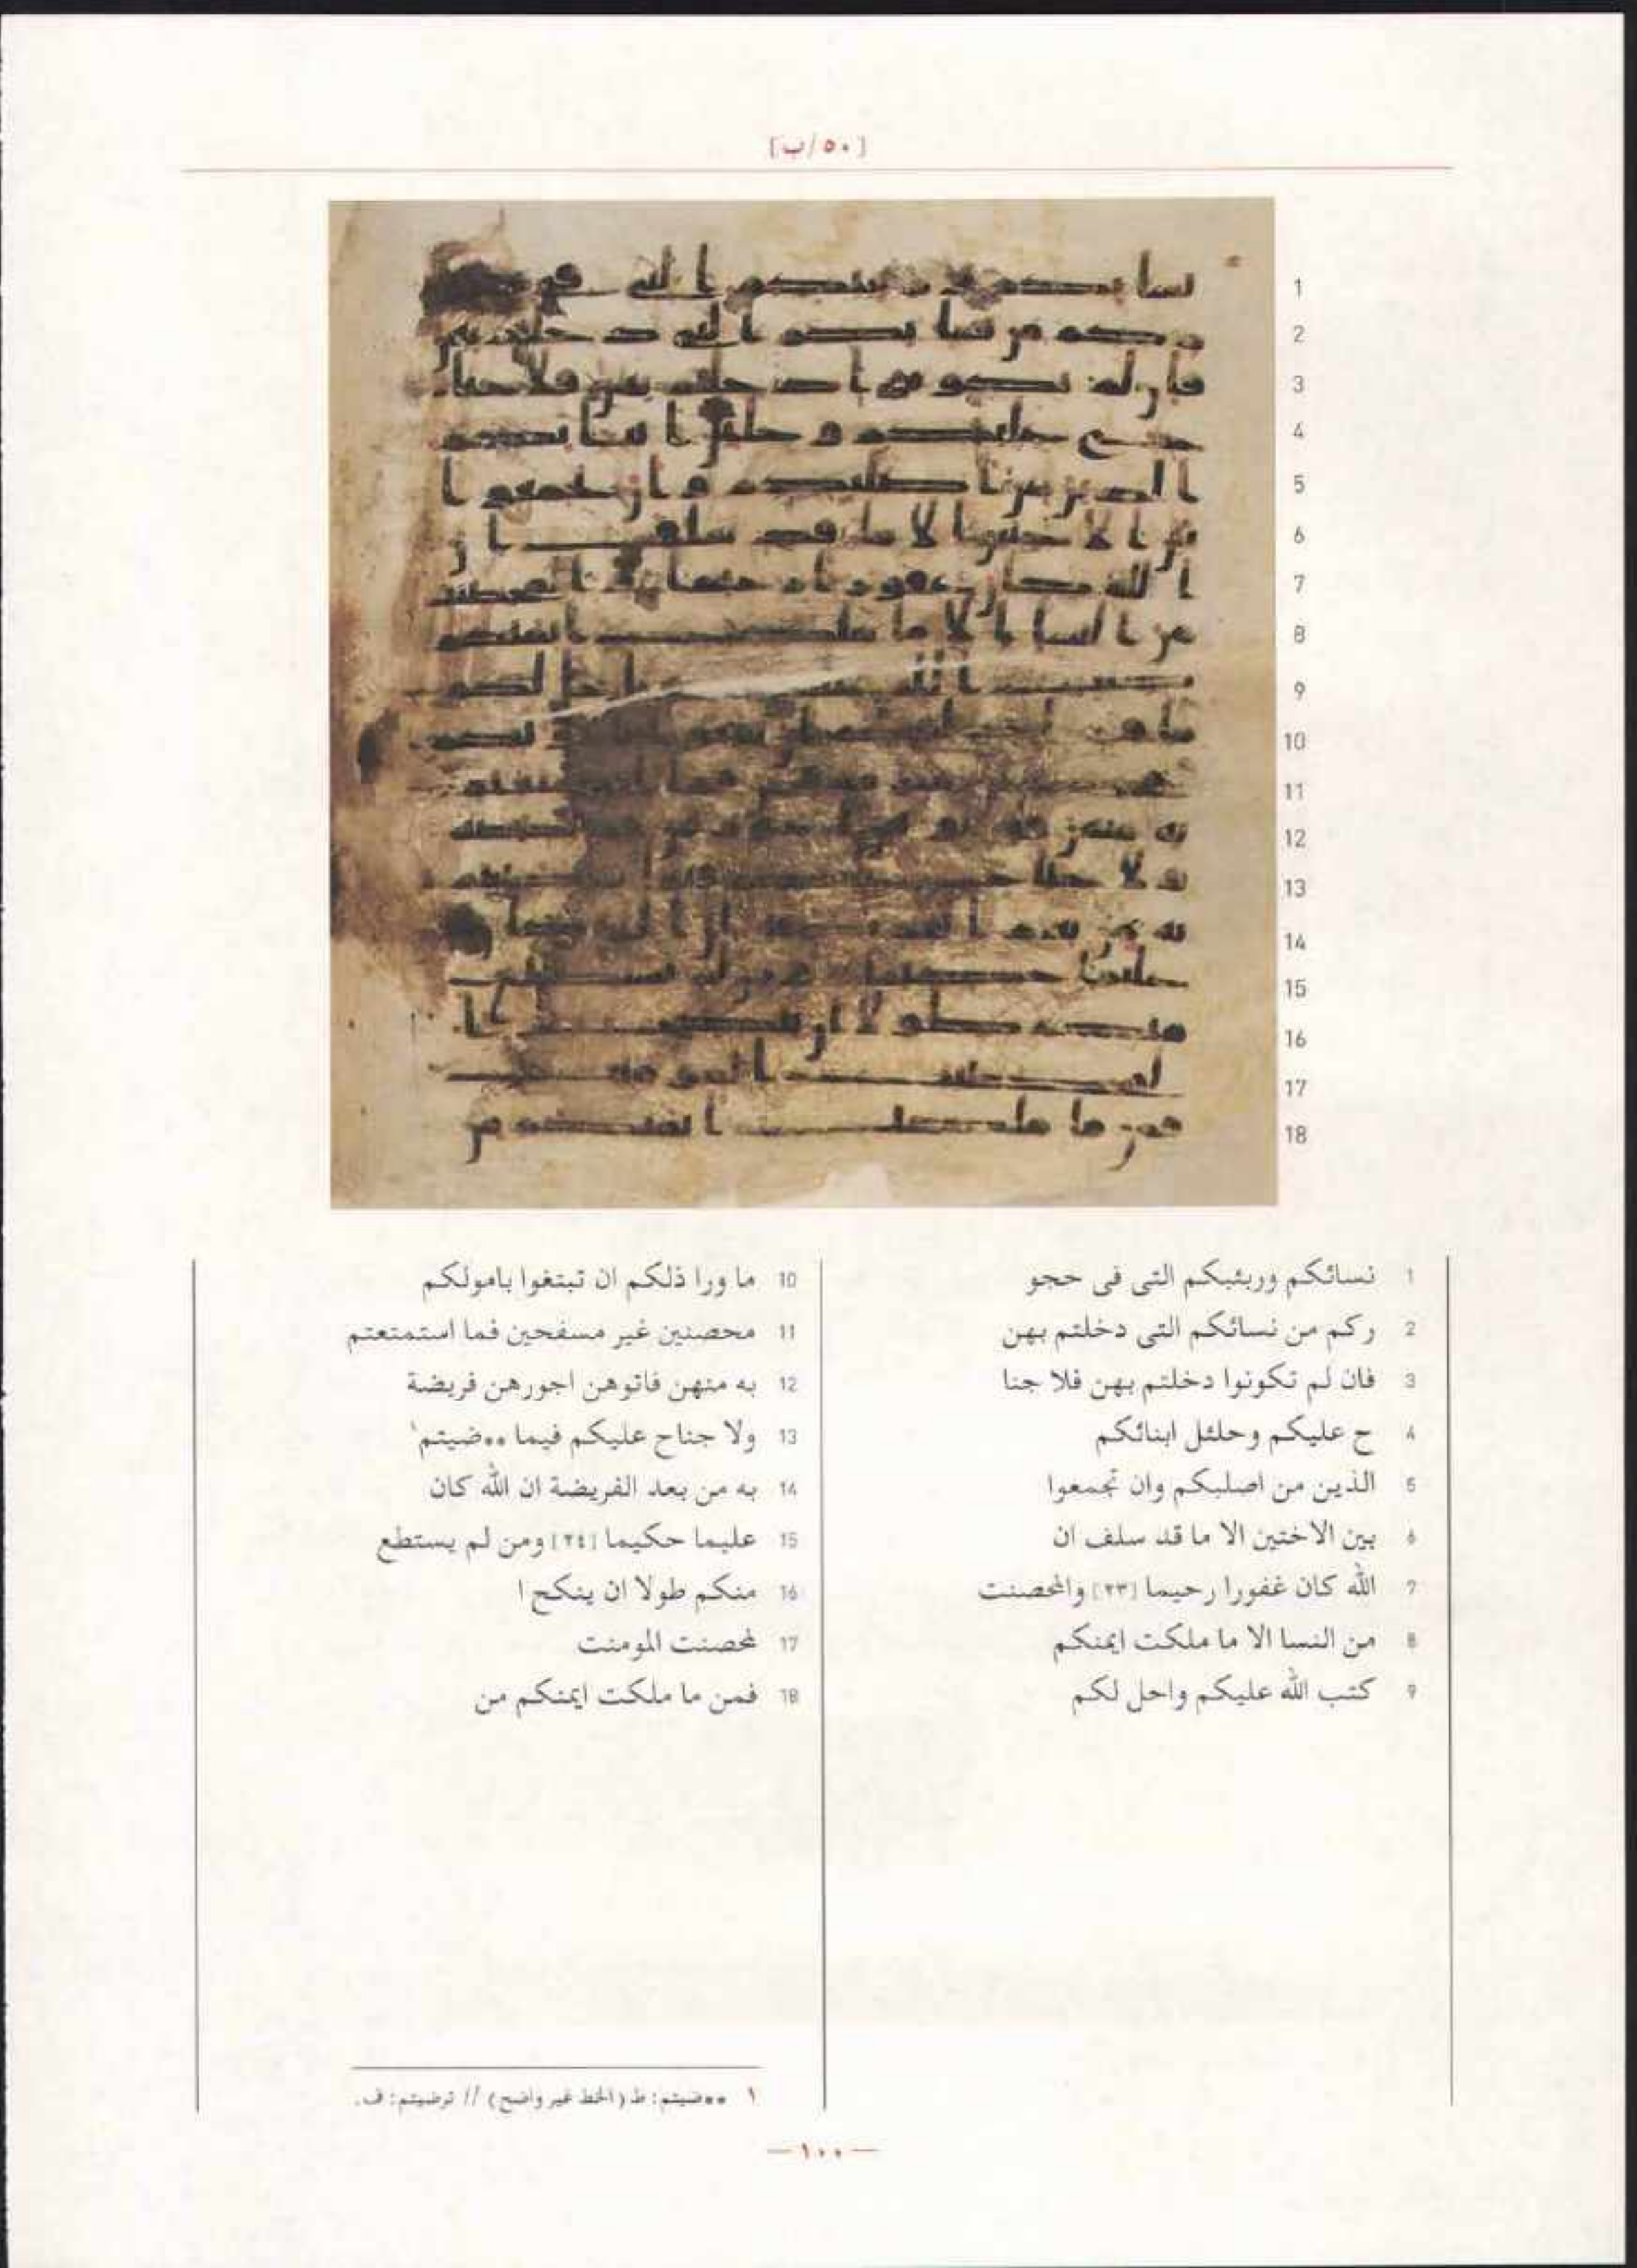 [٥٠/ب]
1 نسائكم وربئبكم التى فى حجو
2 ركم من نسائكم التى دخلتم بهن
3 فان لم تكونوا دخلتم بهن فلا جنا
4 ح عليكم وحلئل ابنائكم
5 الذين من اصلبكم وان تجمعوا
6 بين الاختين الا ما قد سلف ان
7 الله كان غفورا رحيما [٢٣] والمحصنت
8 من النسا الا ما ملكت ايمنكم
9 كتب الله عليكم واحل لكم
10 ما ورا ذلكم ان تبتغوا بامولكم
11 محصنين غير مسفحين فما استمتعتم
12 به منهن فاتوهن اجورهن فريضة
13 ولا جناح عليكم فيما **ضيتم١
14 به من بعد الفريضة ان الله كان
15 عليما حكيما [٢٤] ومن لم يستطع
16 منكم طولا ان ينكح ا
17 لمحصنت المومنت
18 فمن ما ملكت ايمنكم من
١ **ضيتم: ط (الخط غير واضح) // ترضيتم: ف.
—١٠٠—